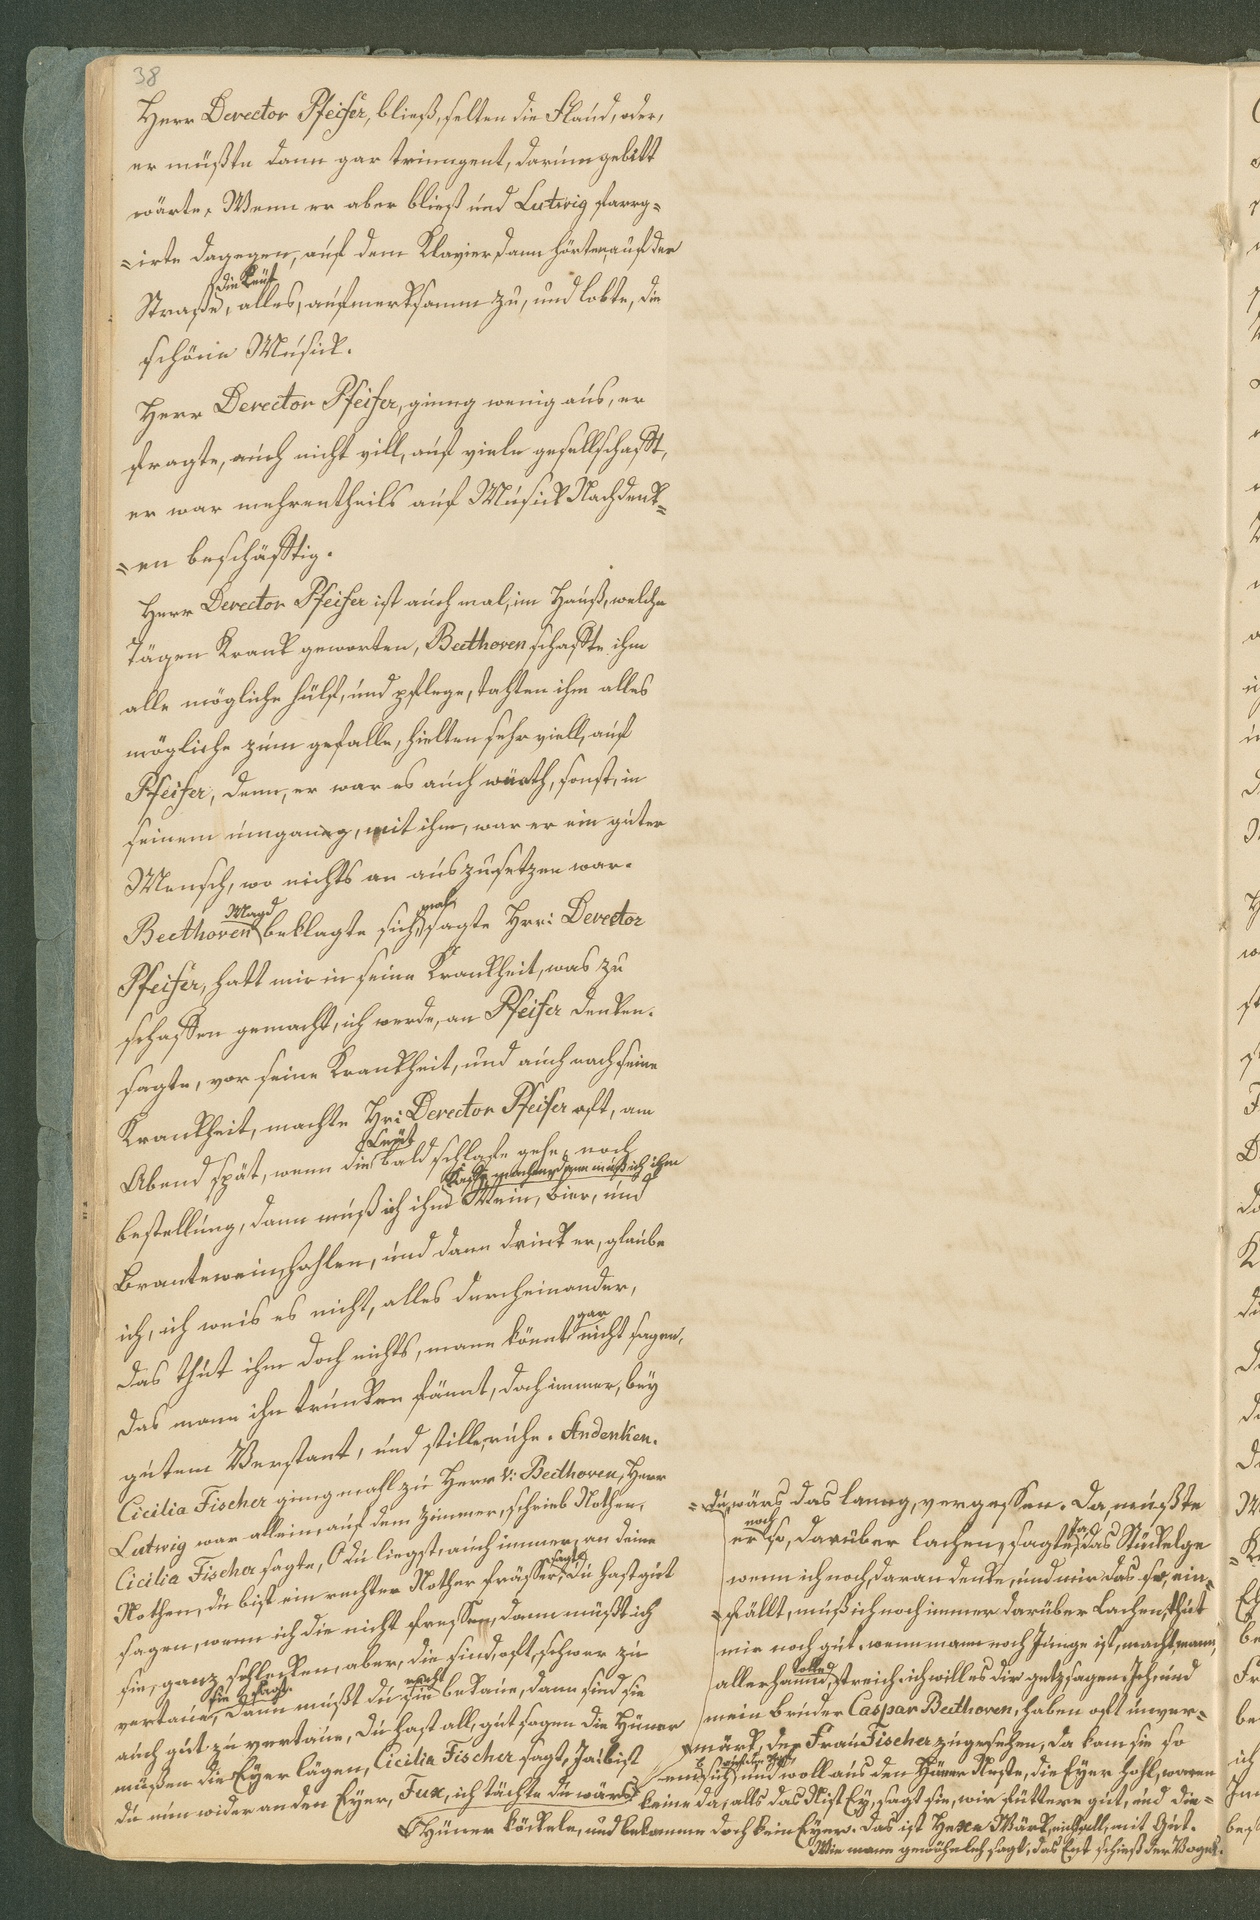 38
Herr Derector Pfeifer, bließ, selten die Flaud, oder,
er müßte dann gar trinngent, darum gebitt
wärte. Wenn er aber bließ und Lutwig farrg=
=irte dagegen, auf dem Klavier, dann hörten, auf der
die Leüt
Straße, alles, aufmerksamm zu, und lobte, die
schöne Musick.
Herr Derector Pfeifer, ginng wenig aus, er
fragte, auch nicht vill, auf viele gesellschafft,
er war mehrentheils auf Musick Nachdenk=
=en beschäfftig.
Herr Derector Pfeifer ist auch mal, im Hauß, welche
Tägen Krank geworten, Beethoven schaffte ihm
alle mögliche hülf, und pflege, tahten ihm alles
mögliche zum gefalle, hielten sehr viell, auf
Pfeifer, denn, er war es auch würth, sonst, in
seinem umganng, mit ihm, war er ein guter
Mensch, wo nichts an auszusetzen war.
Magd mal,
Beethoven beklagte sich, sagte Hrr: Derector
Pfeifer, hatt mir in seine Krankheit, was zu
schaffen gemacht, ich werde, an Pfeifer denken.
sagte, vor seine Krankheit, und auch nach seine
Krankheit, machte Hr: Derector Pfeifer oft, am
Leüt
Abend spät, wenn die bald schlafe gehe, noch
Kaffe machen, dann muß ich ihm
bestellung, dann muß ich ihm Wein, bier, und
Brantewein, hohlen, und dann drinkt er, glaube
ich, ich weis es nicht, alles durcheinander,
gar
das thut ihm doch nichts, mann könnt nicht sagen,
das mann ihn trunken fännt, doch immer, bey
gutem Verstant, und stille, ruhe. Andenken.
Cicilia Fischer ginng mahl zu Herr V: Beethoven, Herr
Lutwig war allein, auf dem Zimmer, schrieb Nothen,
Cicilia Fischer sagte, O du liegst, auch immer, an deine
Nothen, du bist ein rechter Nother frässer, sagte, du hast gut
sagen, wenn ich die nicht fressen, dann müßt ich
sie, ganz schlecken, aber, die sind, oft, schwer zu
sie sagt. recht
vertaue, dann müßt du sie bekaue, dann sind sie
auch gut zu vertaue, du hast all, gut sagen die Hüner
müßen die Eÿer lägen, Cicilia Fischer sagt, Ja, bist
du nun wider an den Eÿer, Fux, ich tächte du wärs
=du, wärs das lanng, vergessen. Da, müßte
noch
er so, darüber lachen, sagte, Ja, das Stückelge
wenn ich noch, daran denke, und mir das so, ein=
=fällt, muß ich noch immer darüber Lachen, thut
mir noch gut. wenn mann noch Junge ist, macht mann,
tolle
allerhannd, streich. ich will es dir getz sagen. Ich, und
mein bruder Caspar Beethoven, haben oft unver=
=märk, der Frau Fischer zugesehen, da kam sie so
und sich und woll aus den Hüner Neste, die Eÿer hohl, waren
keine da, alls das Nist Eÿ, sagt sie, wir füttere gut, und die=
Hüner köckele, und bekomme doch kein Eÿer. das ist Hexe Wärk, mit Gut.
Wie mann gewöhnlich sagt, das Ent schieß der Vogel.